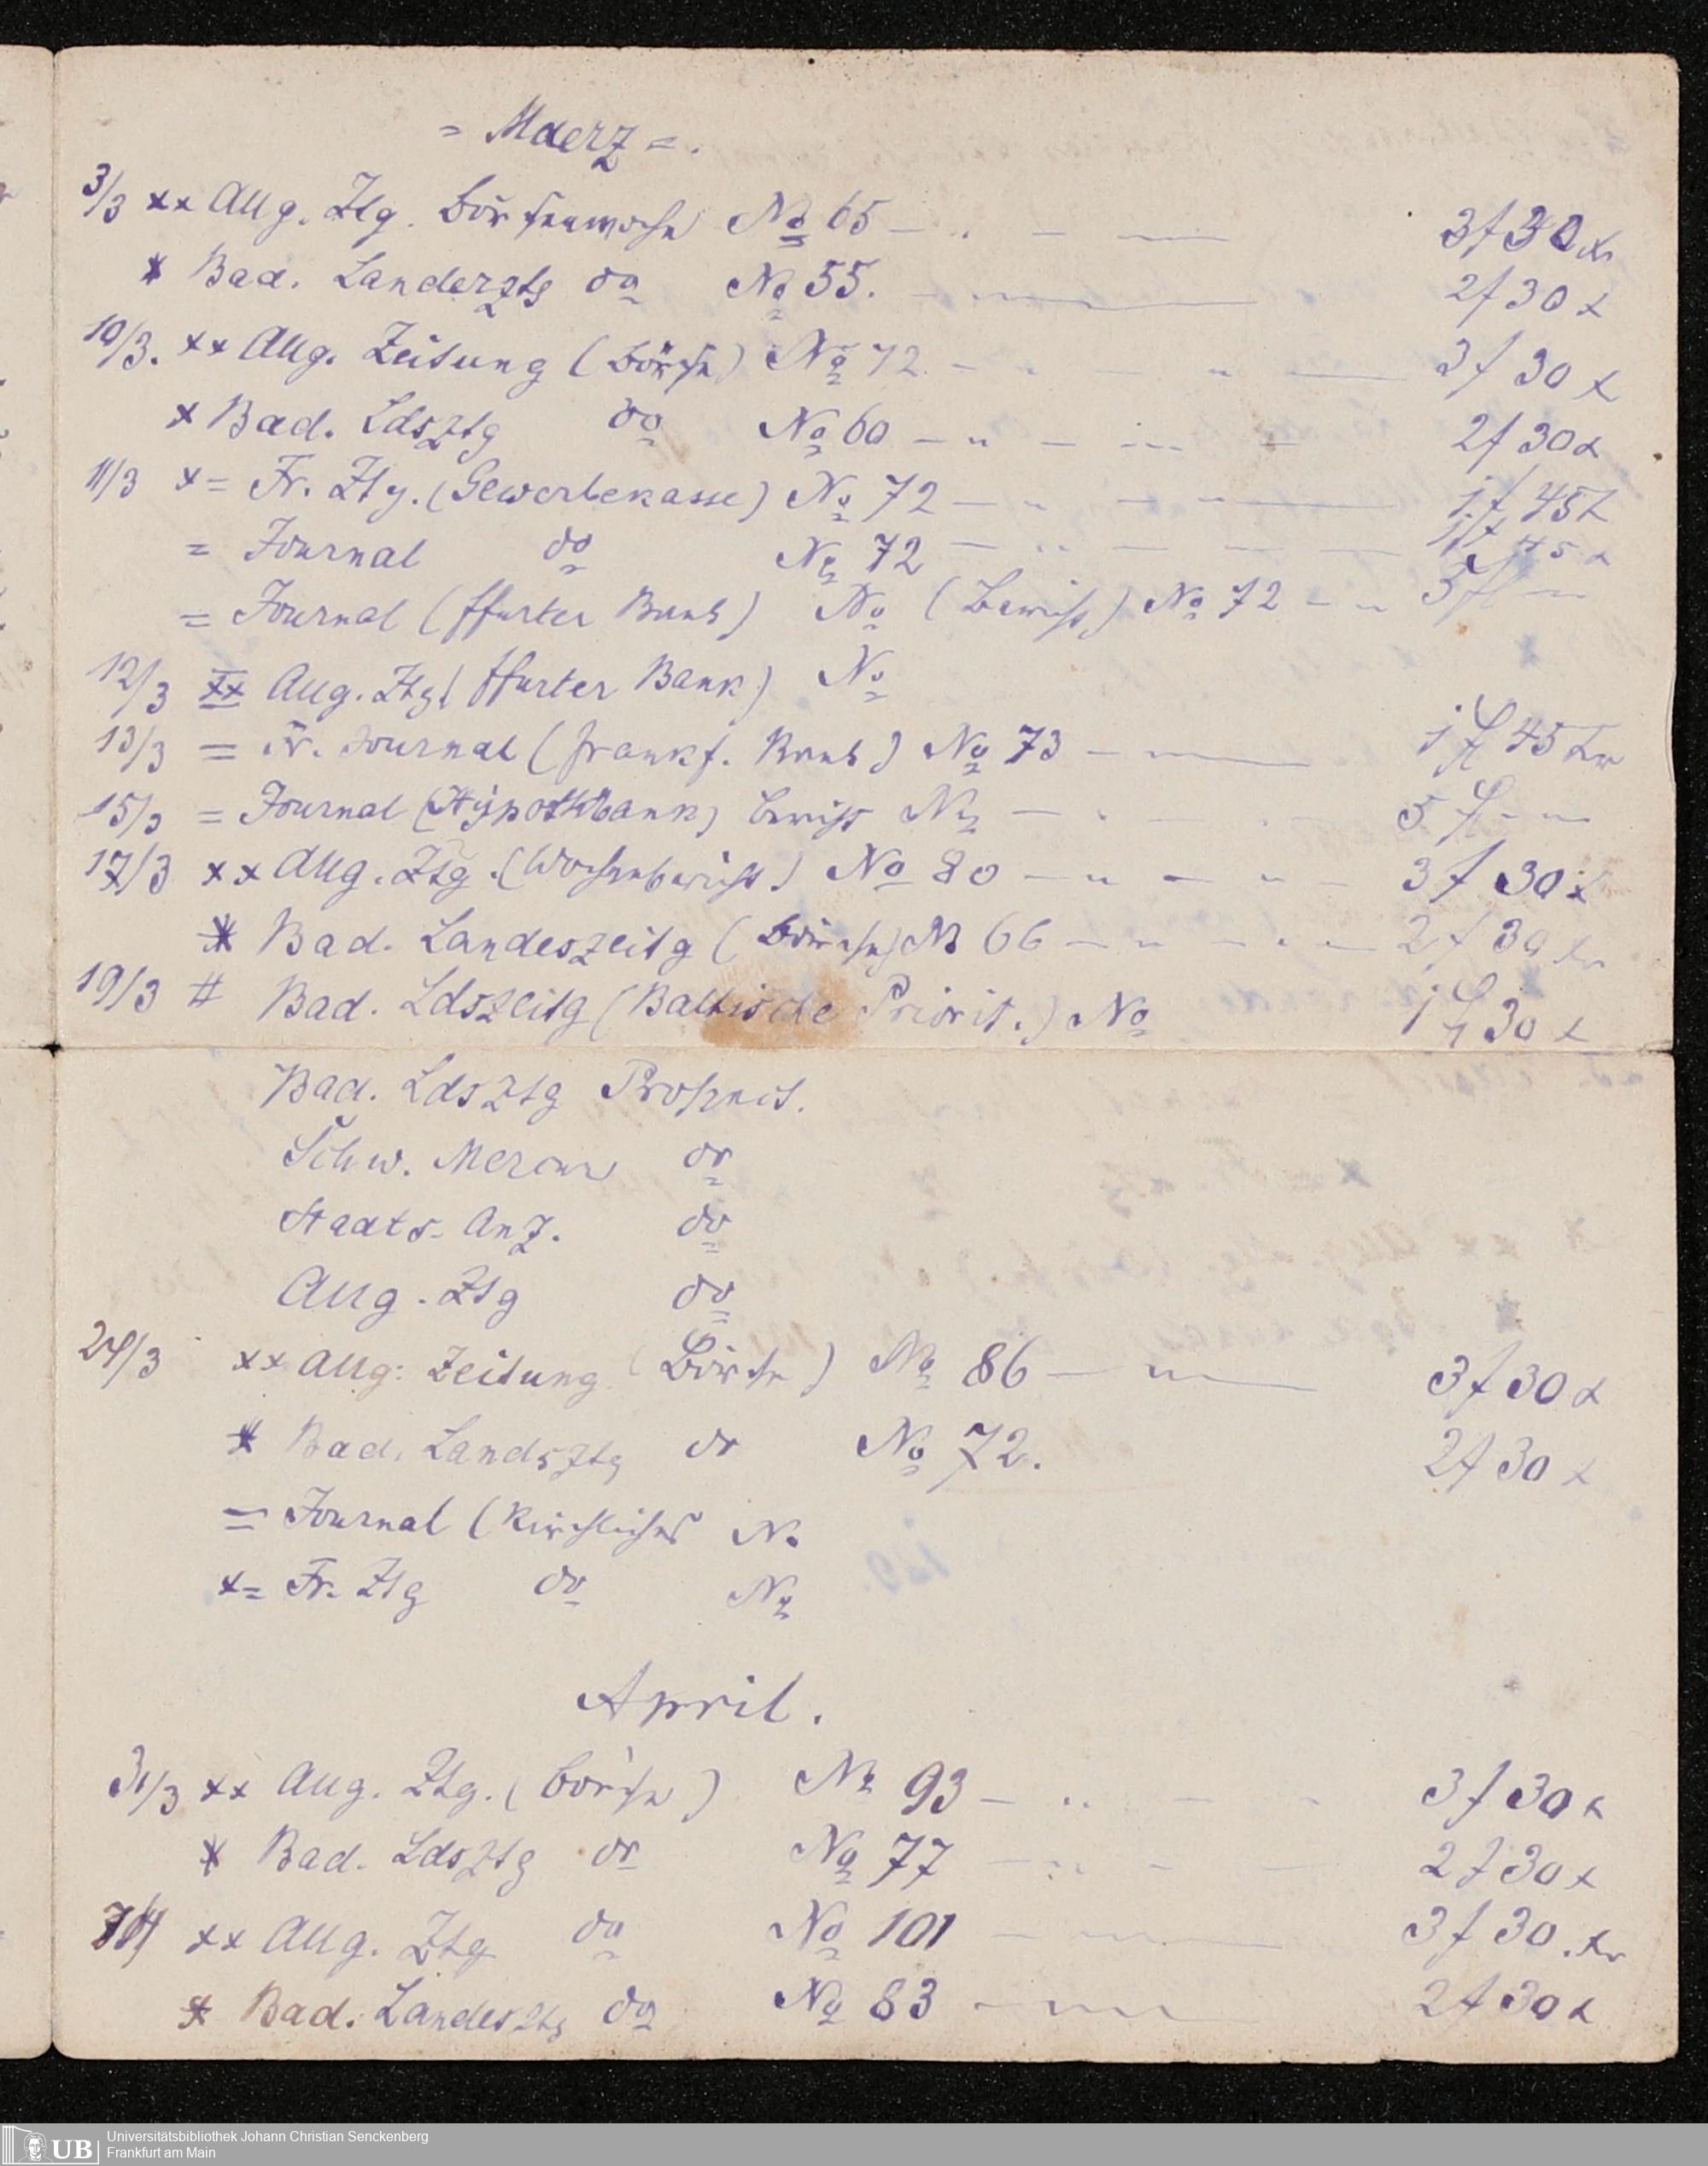 = Maerz =.
3/3 ×× Allg. Ztg. Börsenwoche No 65 — " — — 3 f 30 xr
* Bad. Landerztg do No 55. — " — 2 f 30 x
10/3. ×× Allg. Zeitung (Börse) No 72 — " — " — 3 f 30 x
× Bad. Ldsztg do No 60 — " — " — 2 f 30 x
11/3 ×= Fr. Ztg. (Gewerbekasse) No 72 — " — " — 1 f 45 x
= Journal do No 72 — " — — — 1 f 45 x
= Journal (ffurter Bank) No (Bericht) No 72 — " 5 fl —
12/3 ×× Allg. Ztg ( ffurter Bank) No
13/3 = Fr. Journal (Frankf. Bank) No 73 — " — 1 fl 45 xr
15/3 = Journal (Hypothbank) Bericht No — " — 5 fl —
17/3 ×× Allg. Ztg. (Wochenbericht.) No 80 — " — " — 3 f 30 x
* Bad. Landeszeitg (Börse) No 66 — " — " — 2 f 30 xr
19/3 # Bad. Ldszeitg (Baltische Priorit.) No 1 fl 30 x
Bad. Ldsztg Prospect.
Schw. Mercur do
Staats-Anz. do
Allg. Ztg do
24/3 ×× Allg: Zeitung (Börse) No 86 — " — 3 f 30 x
* Bad. Landsztg do No 72. 2 f 30 x
= Journal (Kirchliches No
×= Fr. Ztg do No
April.
31/3 ×× Allg. Ztg. (Börse) No 93 — " — 3 f 30 x
* Bad. Ldsztg do No 77 — " — 2 f 30 x
×× Allg. Ztg do No 101 — " — 3 f 30. xr
* Bad. Landesztg do No 83 — " — 2 f 30 x
UB
Universitätsbibliothek Johann Christian Senckenberg
Frankfurt am Main